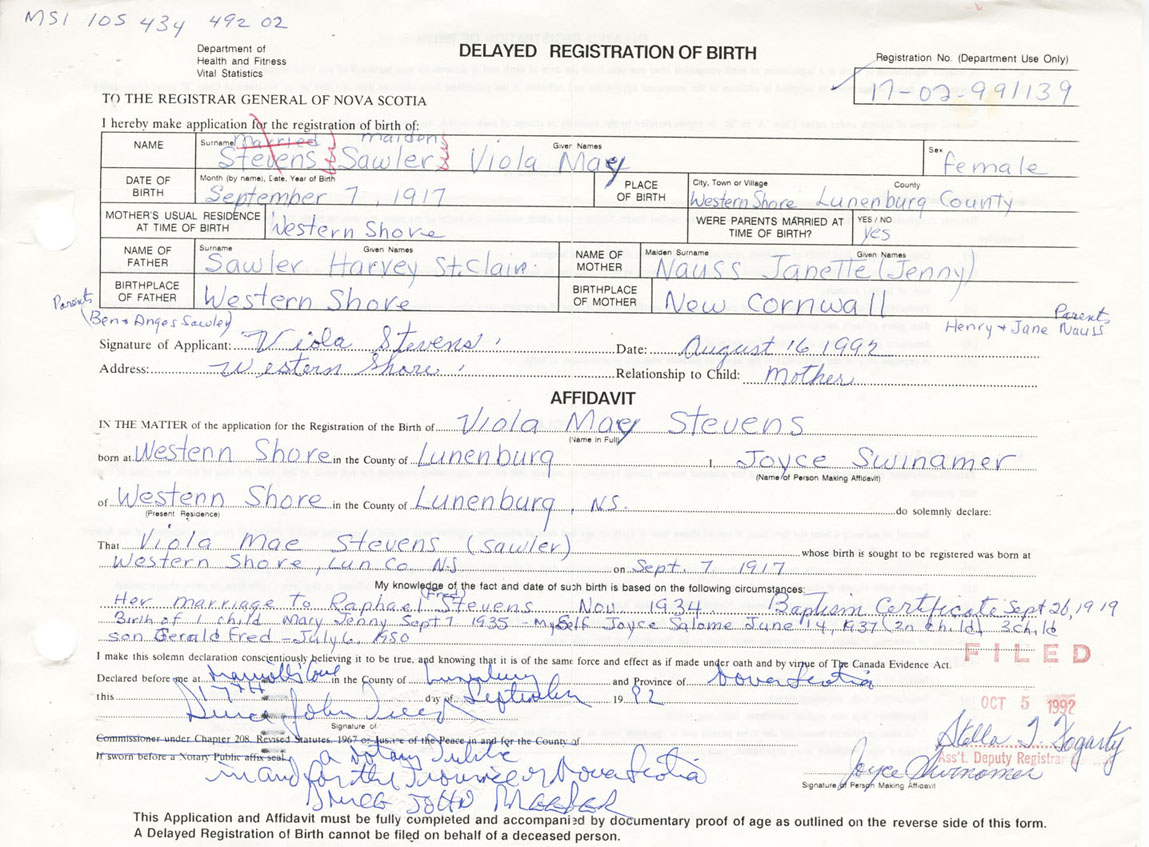 MSI 105 434 492 02
Department of
Health and Fitness
Vital Statistics
DELAYED REGISTRATION OF BIRTH
Registration No. (Department Use Only)
17-02-991139
TO THE REGISTRAR GENERAL OF NOVA SCOTIA
I hereby make application for the registration of birth of:
NAME Surname married maiden Given Names Sex
Stevens Sawler Viola Mae female
DATE OF BIRTH Month (by name), Date, Year of Birth PLACE OF BIRTH City, Town or Village County
September 7, 1917 Western Shore Lunenburg County
MOTHER'S USUAL RESIDENCE AT TIME OF BIRTH Western Shore WERE PARENTS MARRIED AT TIME OF BIRTH? YES / NO yes
NAME OF FATHER Surname Given Names NAME OF MOTHER Maiden Surname Given Names
Sawler Harvey St.Clair. Nauss Janette (Jenny)
BIRTHPLACE OF FATHER Western Shore BIRTHPLACE OF MOTHER New Cornwall
Parents (Ben + Anges Sawler) Parents Henry + Jane Nauss
Signature of Applicant: Viola Stevens Date: August 16 1992
Address: Western Shore Relationship to Child: Mother
AFFIDAVIT
IN THE MATTER of the application for the Registration of the Birth of Viola Mae Stevens
(Name in Full)
born at Western Shore in the County of Lunenburg I, Joyce Swinamer
(Name of Person Making Affidavit)
of Western Shore in the County of Lunenburg, N.S. do solemnly declare:
(Present Residence)
That Viola Mae Stevens (Sawler) whose birth is sought to be registered was born at
Western Shore, Lun. Co. N.S. on Sept. 7 1917
My knowledge of the fact and date of such birth is based on the following circumstances:
Her marriage to Raphael (Fred) Stevens Nov. 1934. Baptism Certificate Sept 26, 1919
Birth of 1 child Mary Jenny Sept 7 1935 - Myself Joyce Salome June 14, 1937 (2n child) 3 child
son Gerald Fred - July 6, 1950
I make this solemn declaration conscientiously believing it to be true, and knowing that it is of the same force and effect as if made under oath and by virtue of The Canada Evidence Act.
FILED
Declared before me at in the County of Lunenburg and Province of Nova Scotia
this 17TH day of September 1992
OCT 5 1992
Signature of
Commissioner under Chapter 208, Revised Statutes, 1967 or Justice of the Peace in and for the County of
Stella T. Fogarty
Ass't. Deputy Registrar
If sworn before a Notary Public affix seal
a Notary Public
in and for the Province of Nova Scotia
Joyce Swinamer
Signature of Person Making Affidavit
JOHN
This Application and Affidavit must be fully completed and accompanied by documentary proof of age as outlined on the reverse side of this form.
A Delayed Registration of Birth cannot be filed on behalf of a deceased person.